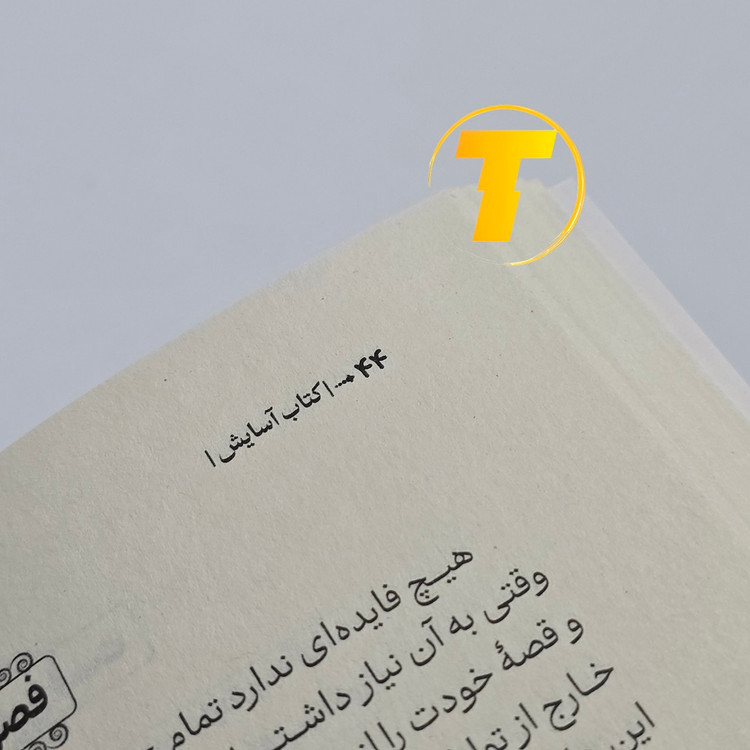 T
۴۴ ...• | کتاب آسایش |
هیچ فایده‌ای ندارد تمام
وقتی به آن نیاز داشتی
و قصهٔ خودت را از
خارج از
این